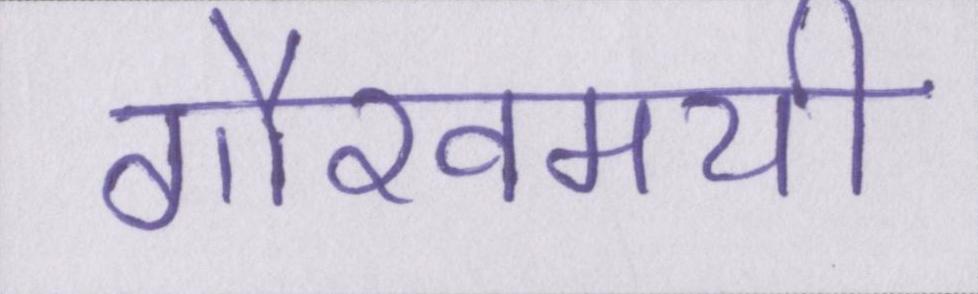 गौरवमयी